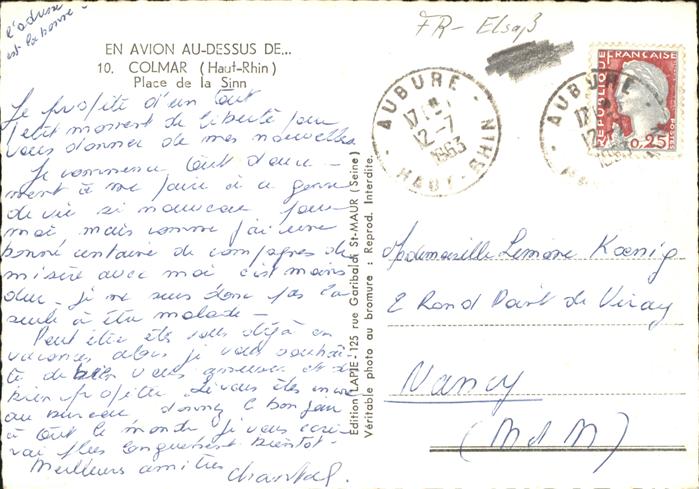 l'adresse
est la bonne
FR- Elsaß
EN AVION AU-DESSUS DE...
10. COLMAR (Haut-Rhin)
Place de la Sinn
Je profite d'un tout
petit moment de liberté pour
vous donner de mes nouvelles.
Je commence tout douce-
ment à me faire à ce genre
de vie si nouveau pour
moi mais comme j'ai une
bonne centaine de compagnes de
misère avec moi c'est moins
dur. je ne suis donc pas la
seule à être malade-
Peut être êtes vous déjà en
vacances alors je vous souhai-
te de bien vous amuser et de
bien profiter. Si vous êtes encore
au bureau donnez le bonjour
à tout le monde je vous écri-
rai plus longuement bientôt-
Meilleurs amitiés
Chantal.
Edition LAPIE - 125 rue Garibaldi St-MAUR (Seine)
Véritable photo au bromure : Reprod. Interdite.
AUBURE
17 H
12-7
1963
HAUT-RHIN
AUBURE
17 H
12
1963
REPUBLIQUE FRANÇAISE
0,25
Mademoiselle Koenig
2 Rond Point de
Nancy
(M et M)